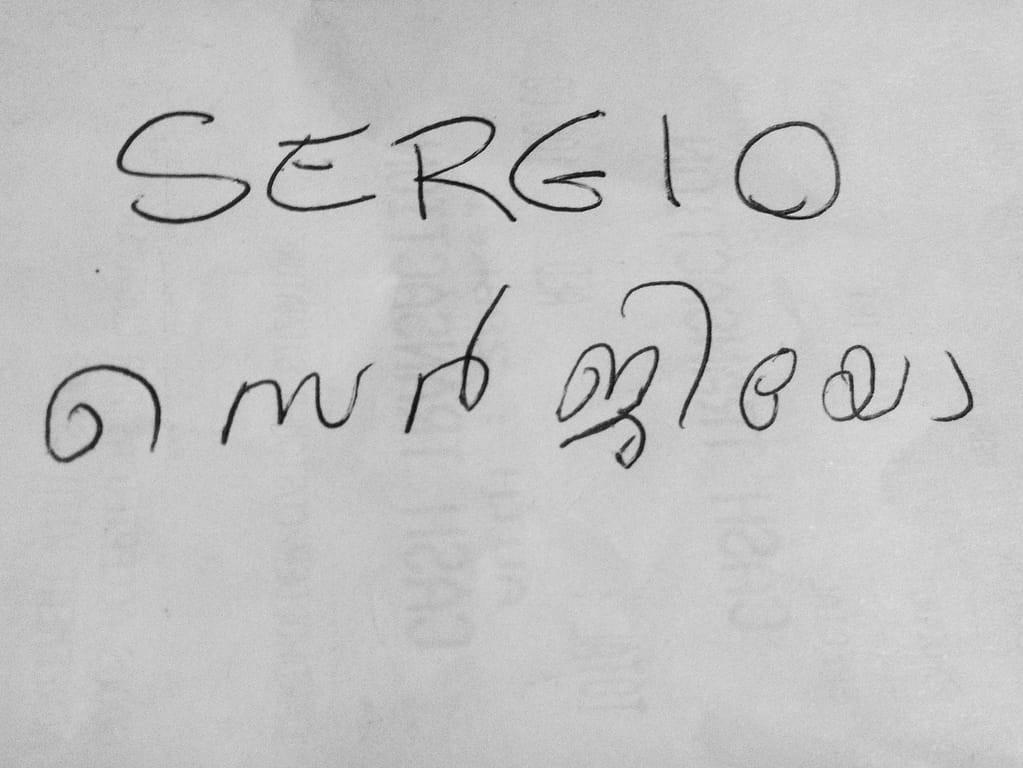 SERGIO
സെർജിയോ